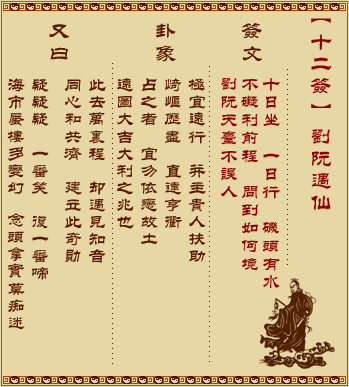 【十二簽】 劉阮遇仙
簽文
十日坐 一日行 磯頭有水
不礙利前程 問到如何境
劉阮天臺不誤人
卦象
極宜遠行 并主貴人扶助
崎嶇歷盡 直達亨衢
占之者 宜勿依戀故土
遠圖大吉大利之兆也
又曰
此去萬裏程 却遇見知音
同心和共濟 建立此奇勛
疑疑疑 一番笑 復一番啼
海市蜃樓多變幻 念頭拿實莫痴迷